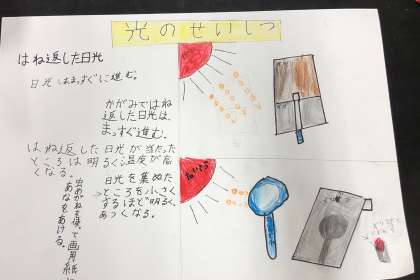 光のせいしつ
はね返した日光
日光はまっすぐに進む。
かがみではね
返した日光は、
まっすぐ進む。
はね返した日光が当たった
ところは明るく温度が高
くなる。
日光を集めた
ところを小さく
するほど明るく、
あつくなる。
虫めがねを使って画用紙に
あなをあける。